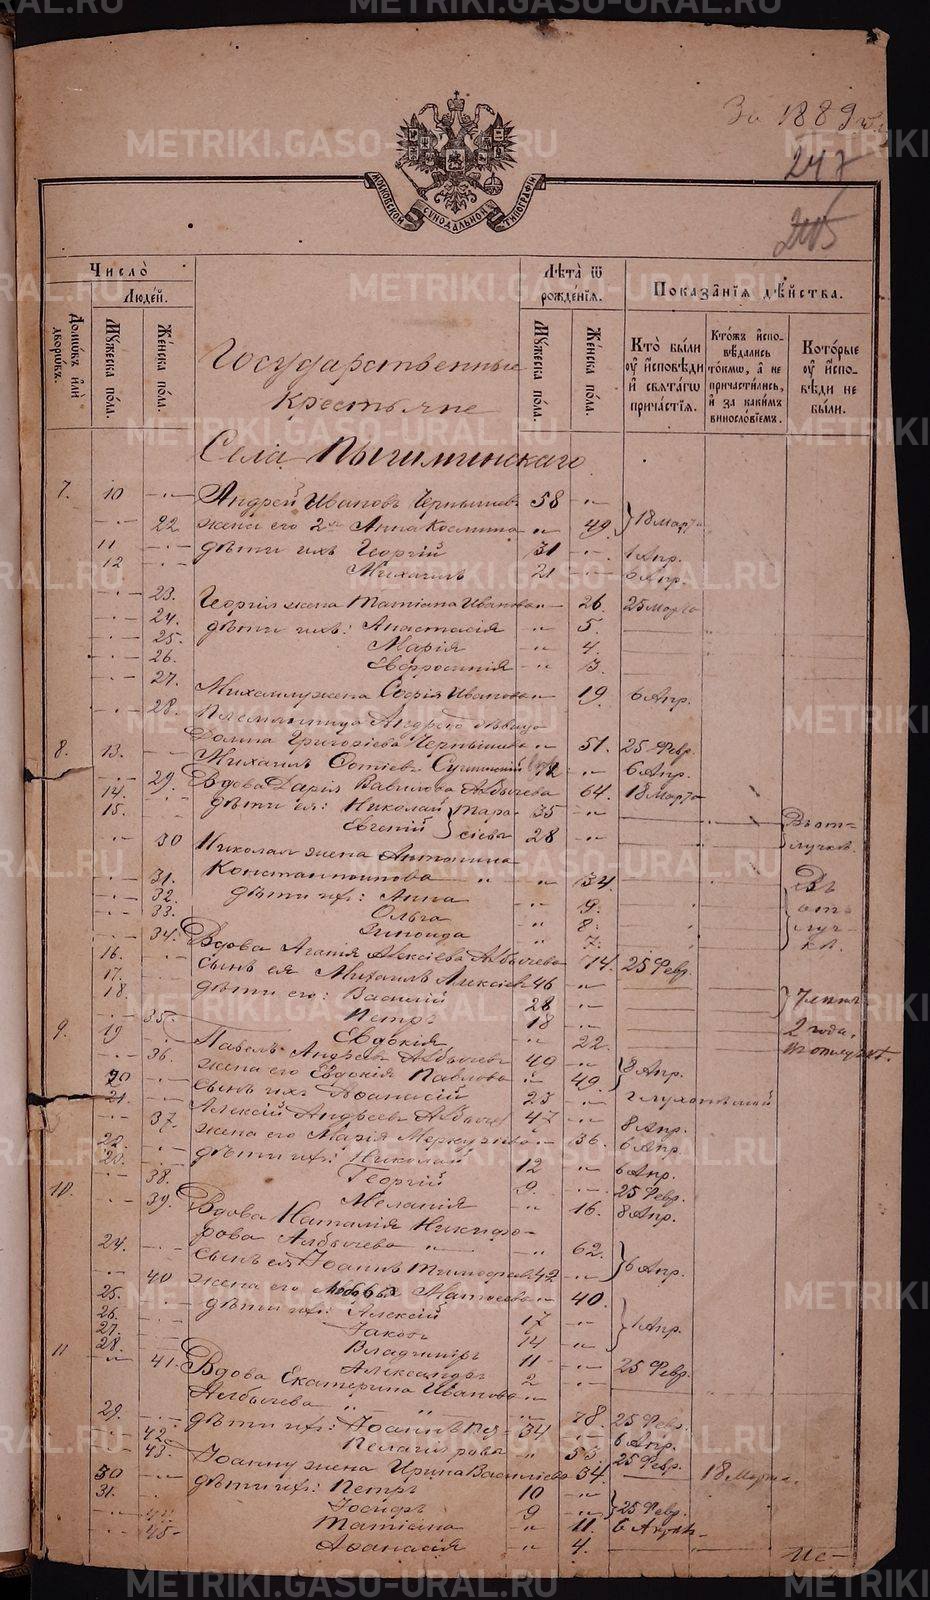 METRIKI.GASO-URAL.RU
За 1889 год
247
205
МОСКОВСКОЙ СѴНОДАЛЬНОЙ ТИПОГРАФІИ
Число̀
Люде́й.
Домѡ́въ и҆лѝ дворѡ́въ.
Мꙋ́жеска по́ла.
Же́нска по́ла.
Лѣ́та ѿ рожде́нїѧ.
Мꙋ́жеска по́ла.
Же́нска по́ла.
Показа̑нїѧ дѣ́йства.
Кто̀ бы́ли ᲂу҆ и҆́сповѣди и҆ свѧта́гѡ прича́стїѧ.
Кто́жъ и҆спо-
вѣ́дались то́кмѡ, а҆ не причасти́лись, и҆ за каки́мъ виносло́вїемъ.
Кото́рые ᲂу҆ и҆́спо-
вѣди не бы́ли.
Государственные
Крестьяне
Села Пышминскаго
7. 10 Андрей Ивановъ Чернышевъ 58
22 жена его 2я Анна Космина 49. 18 Марта
11 дѣти ихъ Георгій 31 1 Апр.
12 Михаилъ 21 6 Апр.
23. Георгія жена Татіана Иванова 26. 25 Марта
24. дѣти ихъ: Анастасія 5.
25. Марія 4.
26. Евфросинія 3.
27. Михаилу жена Софія Иванова 19. 6 Апр.
28. Племянница Андрею дѣвица
Домна Григоріева Чернышева 51. 25 Февр.
8. 13. Михаилъ Сотіевъ 72 6 Апр.
29. Вдова Дарія Вавилова Албычева 64. 18 Марта
14. дѣти ея: Николай Тара- 35
15. Евгеній сіевы 28 Въ от-
лучкѣ.
30 Николая жена Антонина
Константинова 34. Въ
31. дѣти ихъ: Анна 9. от-
32. Ольга 8. луч-
33. Зинаида 7. кѣ.
34. Вдова Агапія Алексіева Албычева 74. 25 Февр.
16. сынъ ея Михаилъ Алексіевъ 46
17. дѣти его: Василій 28
18. Петръ 18 2 года.
35. Евдокія 22.
9. 19 Павелъ Андреевъ Албычевъ 49
36. жена его Евдокія Павлова 49. 8 Апр.
20. сынъ ихъ Аѳанасій 25 глухонѣмой
21. Алексій Андреевъ Албычевъ 47 8 Апр.
37. жена его Марія Меркурьева 36. 6 Апр.
22. дѣти ихъ: Николай 12 6 Апр.
20. Георгій 9. 25 Февр.
38. Меланія 16. 8 Апр.
10. 39. Вдова Наталія Никифо-
рова Албычева 62.
24. сынъ ея Іоаннъ Тимофеевъ 42 6 Апр.
40 жена его Любовь Матѳеева 40.
25. дѣти ихъ: Алексій 17
26. Іаковъ 14 1 Апр.
27. Владиміръ 11
28. Александръ 2 25 Февр.
11 41. Вдова Екатерина Иванова
Албычева 78. 25 Февр.
29. дѣти ихъ: Іоаннъ Пет- 34 6 Апр.
42. Пелагія ровы 53. 25 Февр.
43. Іоанну жена Ирина Василіева 34. 18 Марта.
30 дѣти ихъ: Петръ 10
31. Іосифъ 9 25 Февр.
44. Татіана 11. 6 Апр.
45. Аѳанасія 4.
Ис-